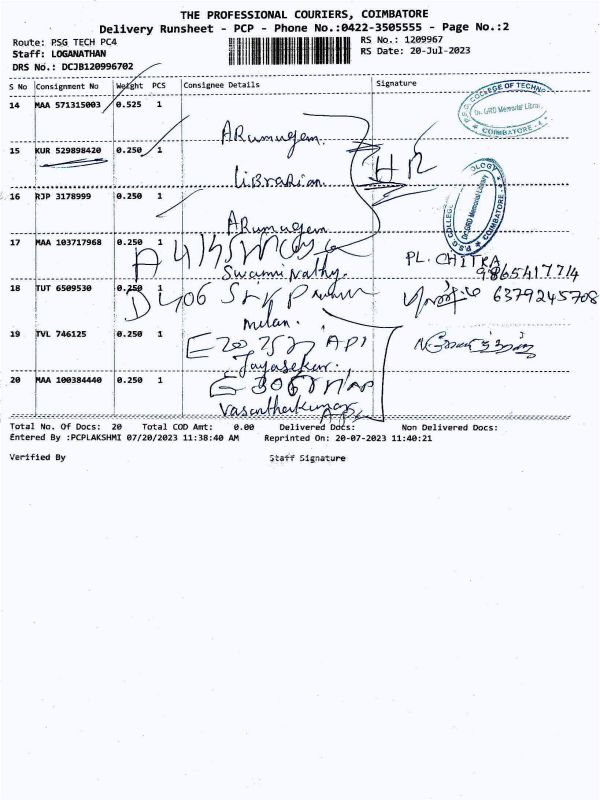 THE PROFESSIONAL COURIERS, COIMBATORE
Delivery Runsheet - PCP - Phone No.:0422-3505555 - Page No.:2
Route: PSG TECH PC4
RS No.: 1209967
Staff: LOGANATHAN
RS Date: 20-Jul-2023
DRS No.: DCJB120996702
S No Consignment No Weight PCS Consignee Details Signature
14 MAA 571315003 0.525 1
P.S.G. COLLEGE OF TECHNOLOGY
Dr. GRD Memorial Library
COIMBATORE
ARumugem.
15 KUR 529898420 0.250 1
LiBrarian
16 RJP 3178999 0.250 1
P.S.G. COLLEGE OF TECHNOLOGY
Dr.GRD Memorial Library
COIMBATORE
ARumugem
17 MAA 103717968 0.250 1
PL. CHITRA
9865417714
Swami Nathy.
18 TUT 6509530 0.250 1
D 406
6379245708
milan.
19 TVL 746125 0.250 1
API
Jayasekar.
20 MAA 100384440 0.250 1
Vasanthakumar
Total No. Of Docs: 20 Total COD Amt: 0.00 Delivered Docs: Non Delivered Docs:
Entered By :PCPLAKSHMI 07/20/2023 11:38:40 AM Reprinted On: 20-07-2023 11:40:21
Verified By Staff Signature